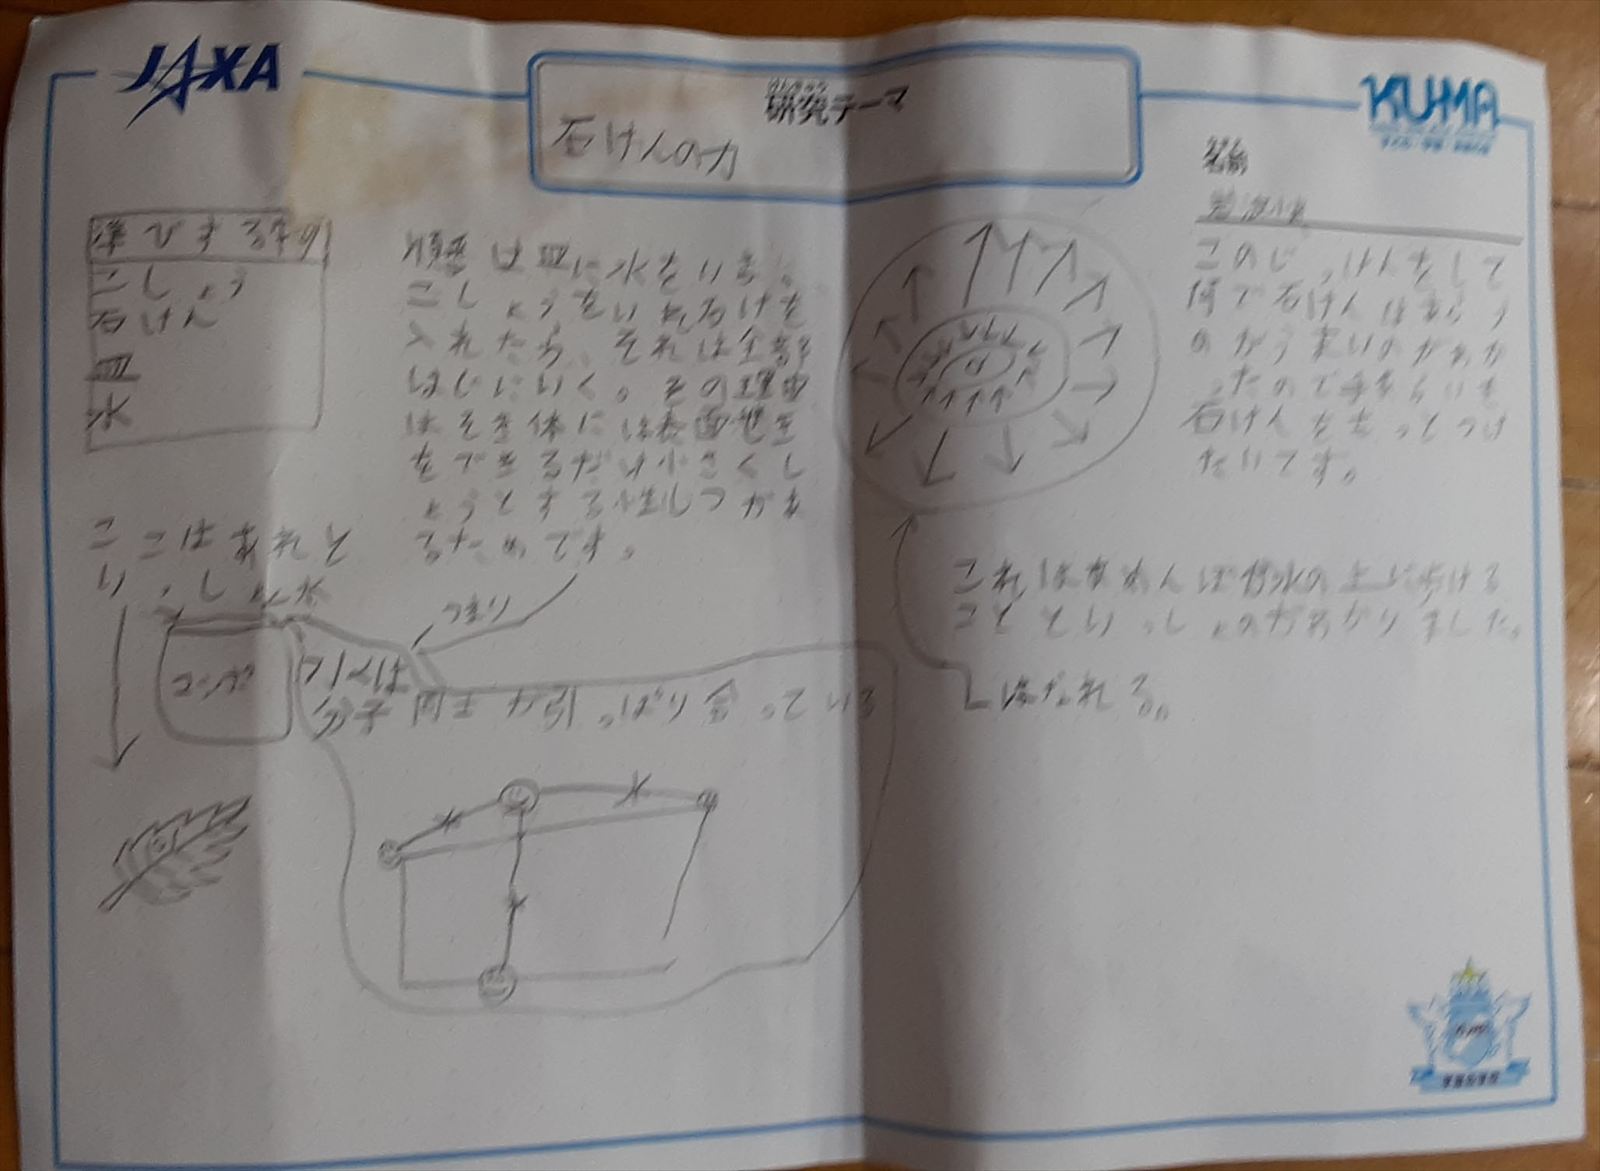 JAXA
研究テーマ
石けんの力
KUMA
名前
準びする物
こしょう
石けん
皿
水
順番は皿に水をいる。
こしょうをいれ石けを
入れたら、それは全部
はじにいく。その理由
はえき体には表面積を
をできるだけ小さくし
ようとする性しつがあ
るためです。
ここはあれと
いっしょ水
コップ
つまり
分子同士が引っぱり合っている
このじっけんをして
何で石けんはあらう
のがう まいのがわか
ったので手あらいを
石けんを使ってつけ
たいです。
これはあめんぼが水の上に歩ける
ことといっしょのがわかりました。
はなれる。